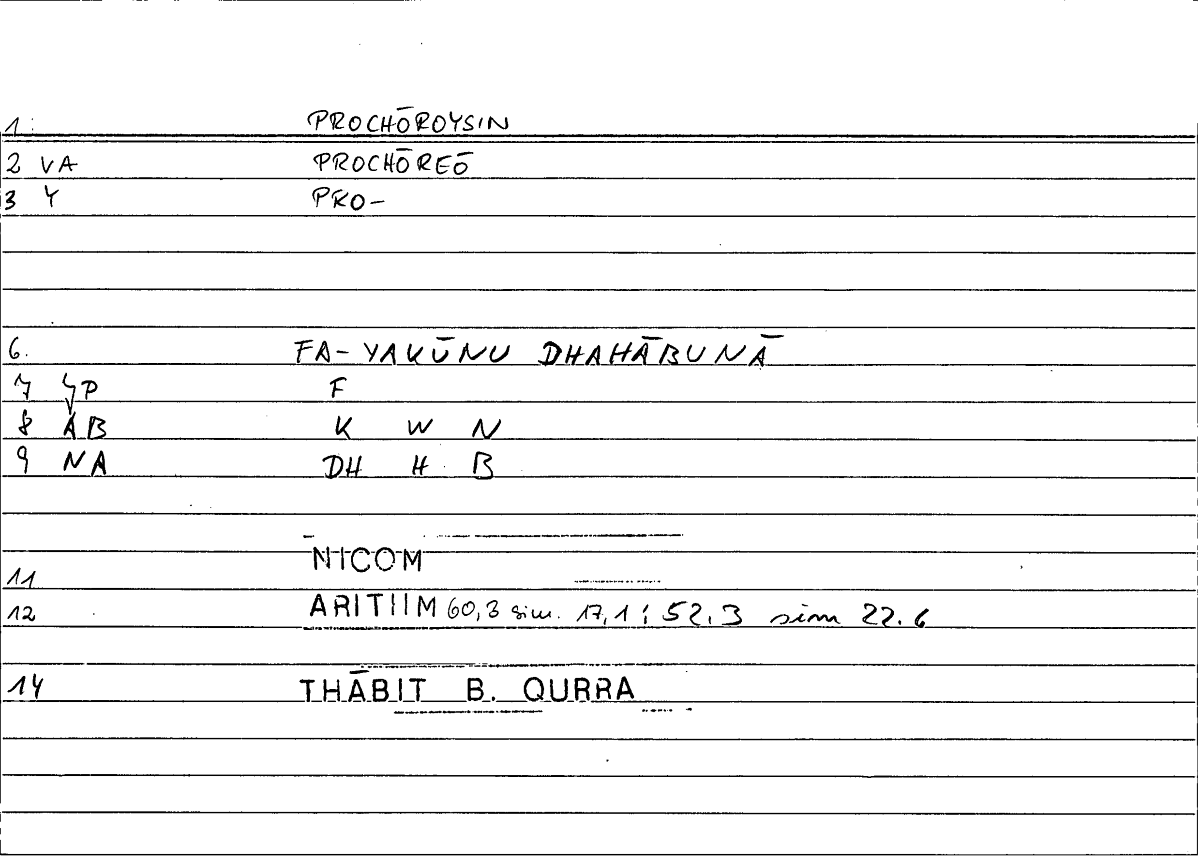 1. PROCHŌROYSIN
2 VA PROCHŌREŌ
3 Y PRO-
6. FA-YAKŪNU DHAHĀBUNĀ
7 SP F
8 AB K W N
9 NA DH H B
11 NICOM
12 ARITIIM 60,3 sim. 17,1; 52.3 sim 22.6
14 THĀBIT B. QURRA